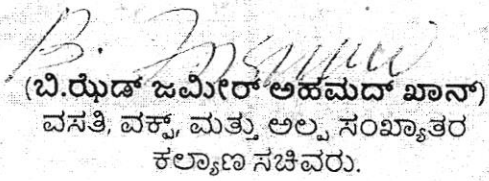 (ಬಿ.ಝೆಡ್ ಜಮೀರ್ ಅಹಮದ್ ಖಾನ್)
ವಸತಿ, ವಕ್ಫ್, ಮತ್ತು ಅಲ್ಪ ಸಂಖ್ಯಾತರ
ಕಲ್ಯಾಣ ಸಚಿವರು.